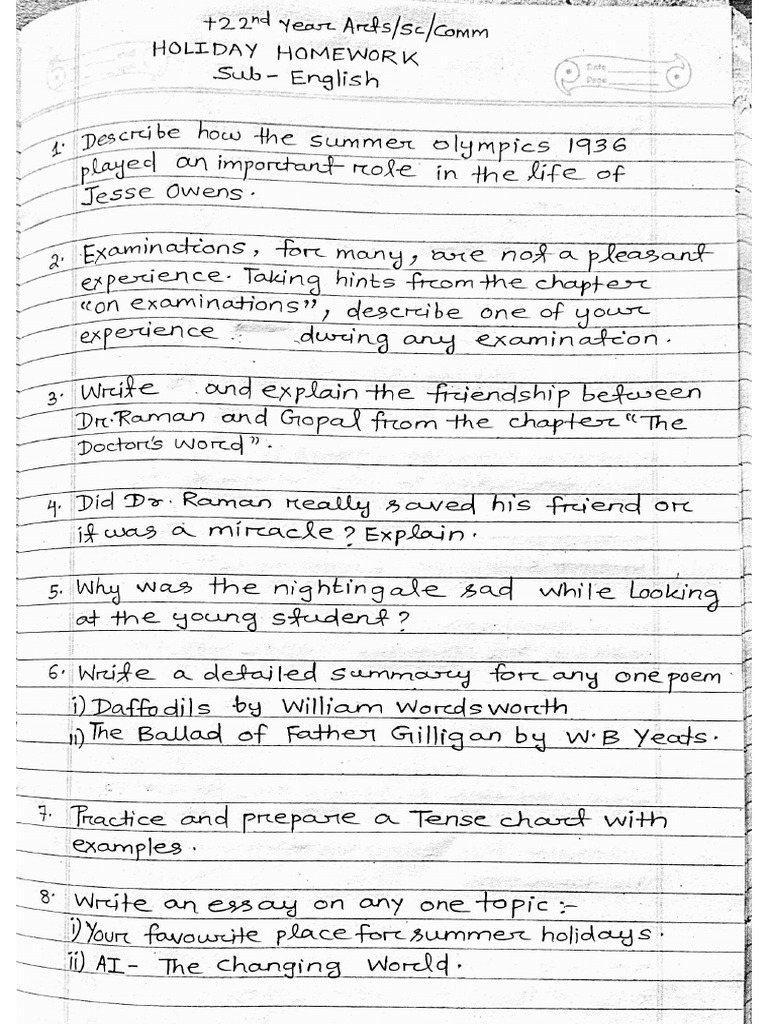 +2 2nd Year Arts/Sc/Comm
HOLIDAY HOMEWORK
Sub- English
Date
Page
1. Describe how the summer olympics 1936
played an important role in the life of
Jesse Owens.
2. Examinations, for many, are not a pleasant
experience. Taking hints from the chapter
"on examinations", describe one of your
experience during any examination.
3. Write and explain the friendship between
Dr. Raman and Gopal from the chapter "The
Doctor's Word".
4. Did Dr. Raman really saved his friend or
it was a miracle? Explain.
5. Why was the nightingale sad while looking
at the young student?
6. Write a detailed summary for any one poem
i) Daffodils by William Wordsworth
ii) The Ballad of Father Gilligan by W.B Yeats.
7. Practice and prepare a Tense chart with
examples.
8. Write an essay on any one topic :-
i) Your favourite place for summer holidays.
ii) AI - The Changing World.